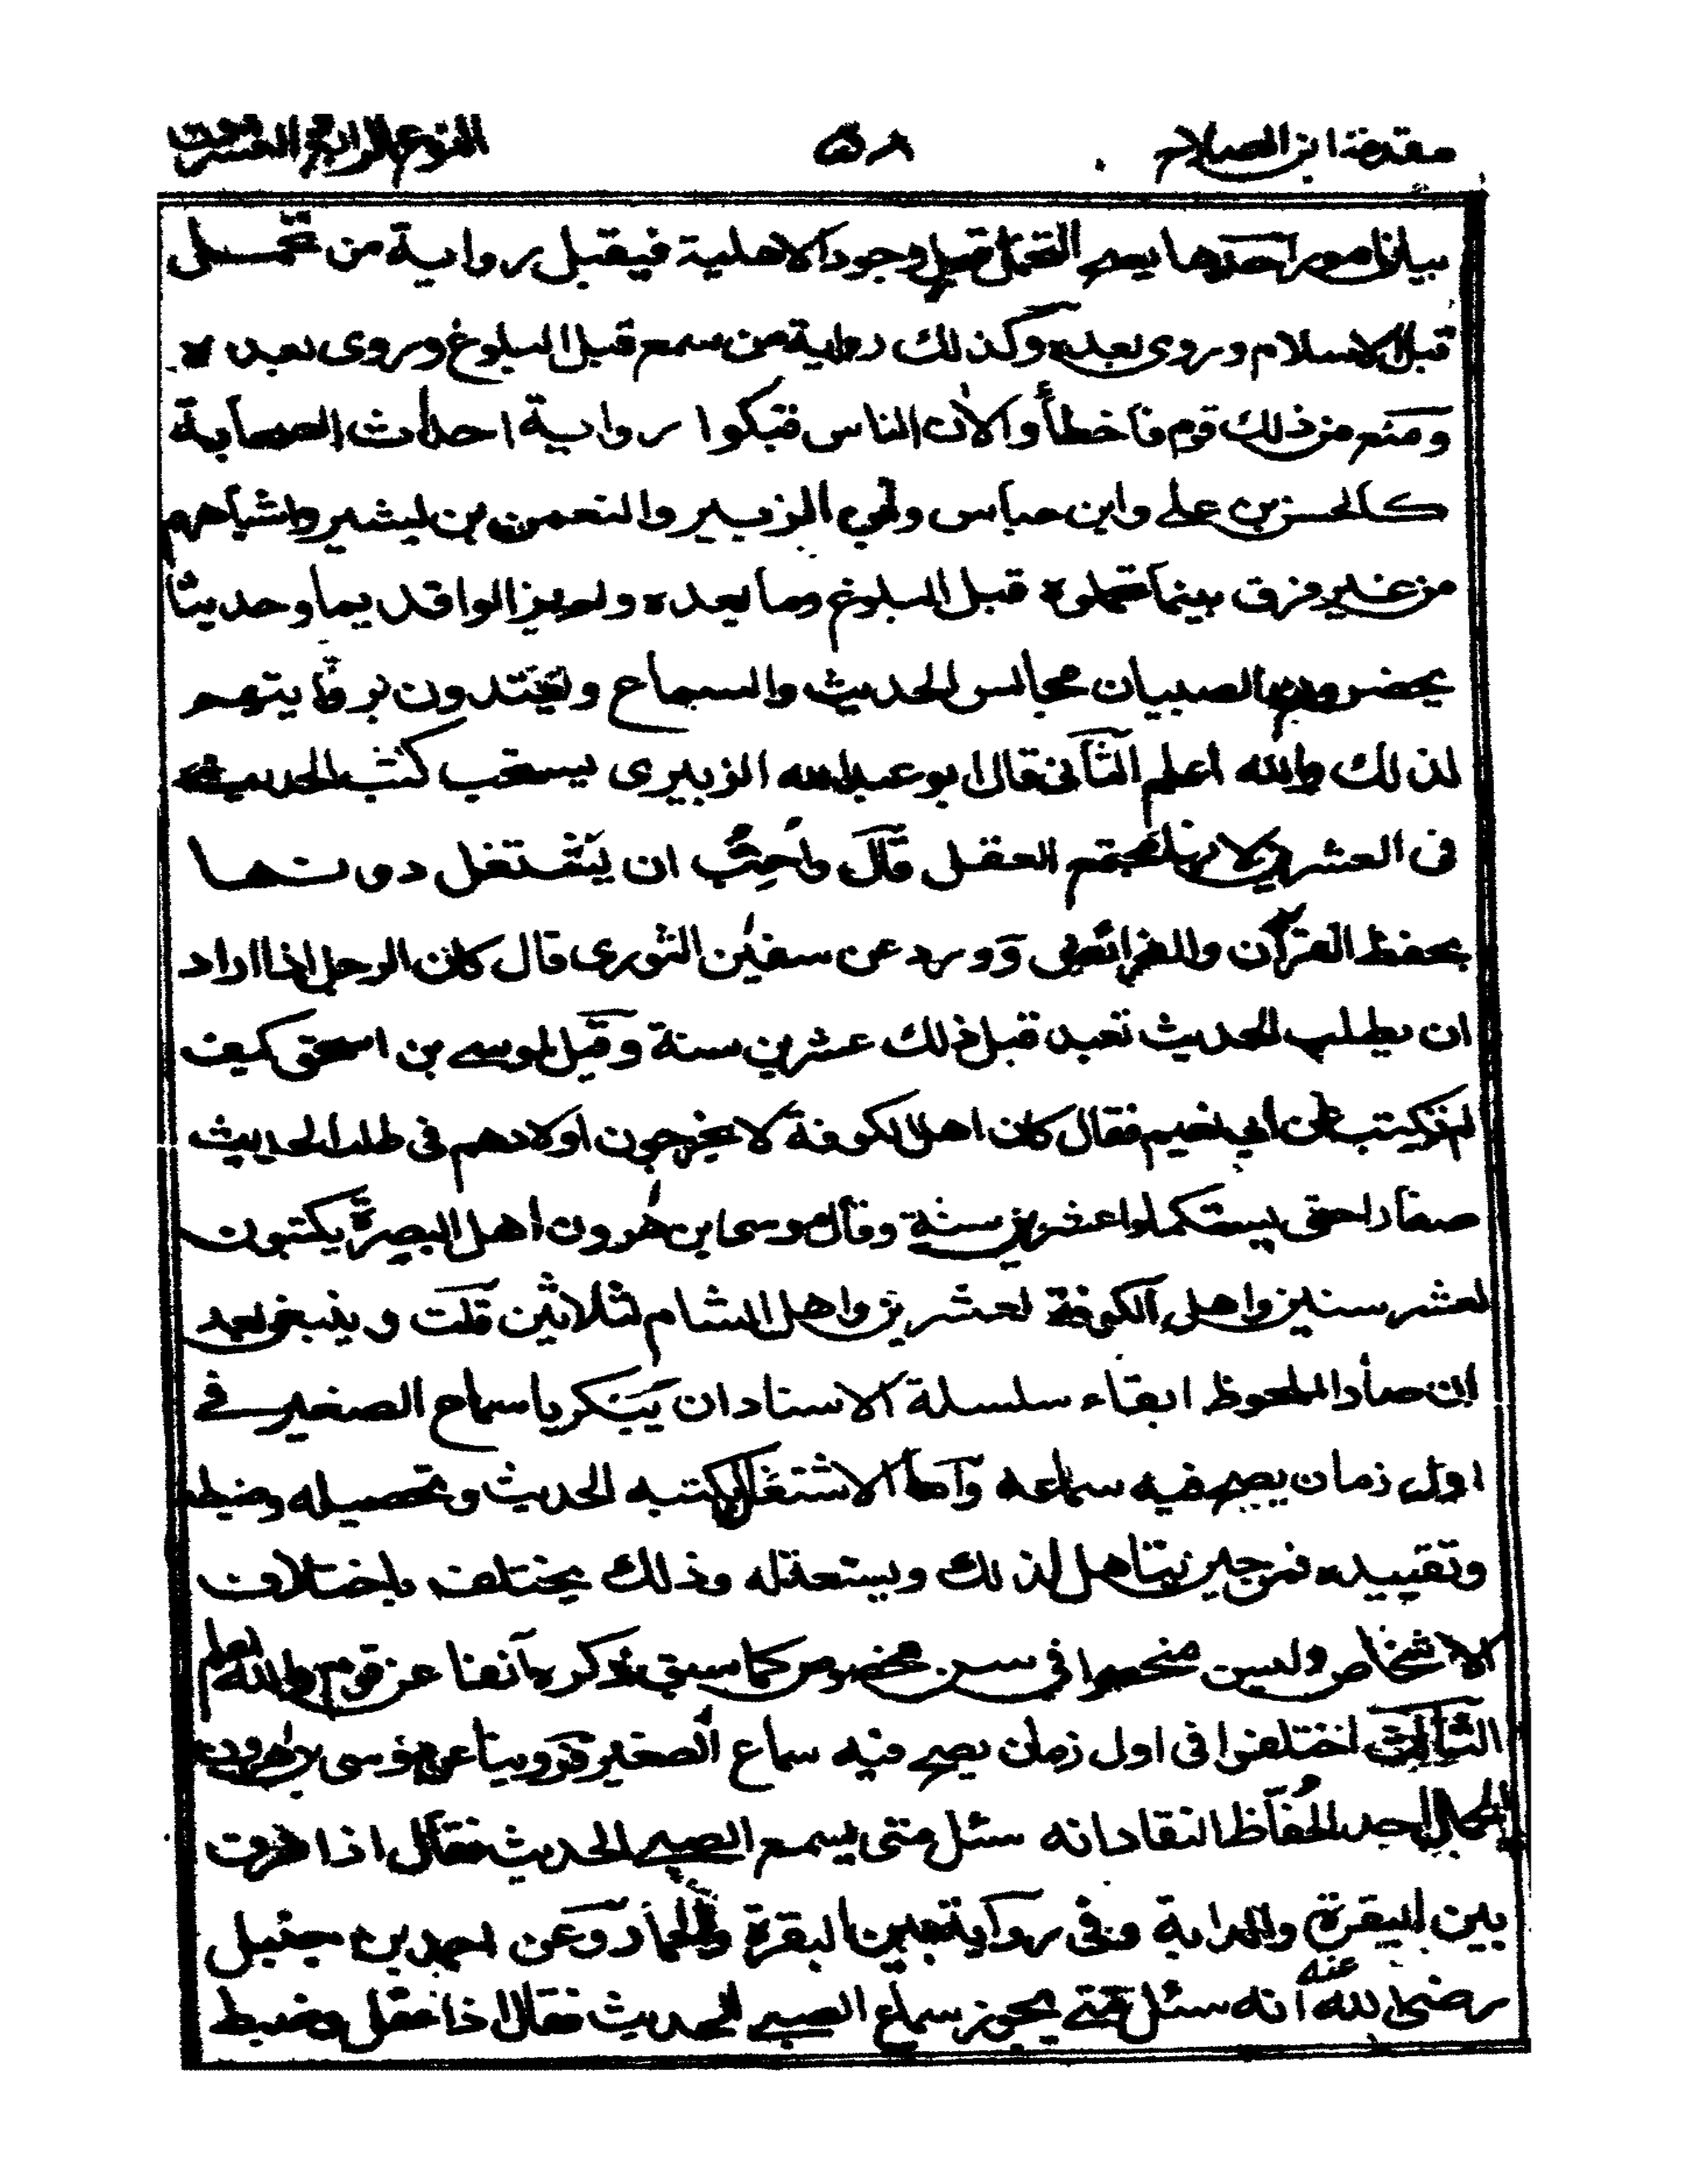 مقدمة ابن الصلاح ٥٨ النوع الرابع العشرون
بيان امور احدها يصح التحمل قبل وجود الاهلية فيقبل رواية من تحمل
قبل الاسلام وروى بعده وكذلك رواية من سمع قبل البلوغ وروى بعده
ومنع من ذلك قوم فاخطأوا لان الناس قبلوا رواية احداث الصحابة
كالحسن بن علي وابن عباس وابن الزبير والنعمن بن بشير واشباههم
من غير فرق بين ما تحملوه قبل البلوغ وما بعده ولم يزالوا قديما وحديثا
يحضرون الصبيان مجالس الحديث والسماع ويعتدون بروايتهم
لذلك والله اعلم الثاني قال ابو عبدالله الزبيرى يستحب كتب الحديث
فى العشرين لانها مجتمع العقل قال واحب ان يشتغل دونها
بحفظ القرآن والفرائض وورد عن سفين الثورى قال كان الرجل اذا اراد
ان يطلب الحديث تعبد قبل ذلك عشرين سنة وقيل لموسى بن اسحق كيف
لم تكتب عن ابي نعيم فقال كان اهل الكوفة لا يخرجون اولادهم فى طلب الحديث
صغارا حتى يستكملوا عشرين سنة وقال موسى ابن هرون اهل البصرة يكتبون
لعشر سنين واهل الكوفة لعشرين واهل الشام لثلاثين قلت وينبغى بعد
ان صار الملحوظ ابقاء سلسلة الاسناد ان يبكر باسماع الصغير في
اول زمان يصح فيه سماعه واما الاشتغال بكتبه الحديث وتحصيله وضبطه
وتقييده فمن حين يتاهل لذلك ويستعد له وذلك يختلف باختلاف
الاشخاص وليس منحصرا في سن مخصوص كما سبق ذكره آنفا عن قوم والله اعلم
الثالث اختلفوا فى اول زمان يصح فيه سماع الصغير فروينا عن موسى بن هرون
الحمال احد الحفاظ النقاد انه سئل متى يسمع الصبي الحديث فقال اذا فرق
بين البقرة والدابة وفى رواية بين البقرة والحمار وعن احمد بن حنبل
رضى الله عنه انه سئل متى يجوز سماع الصبي للحديث فقال اذا عقل وضبط